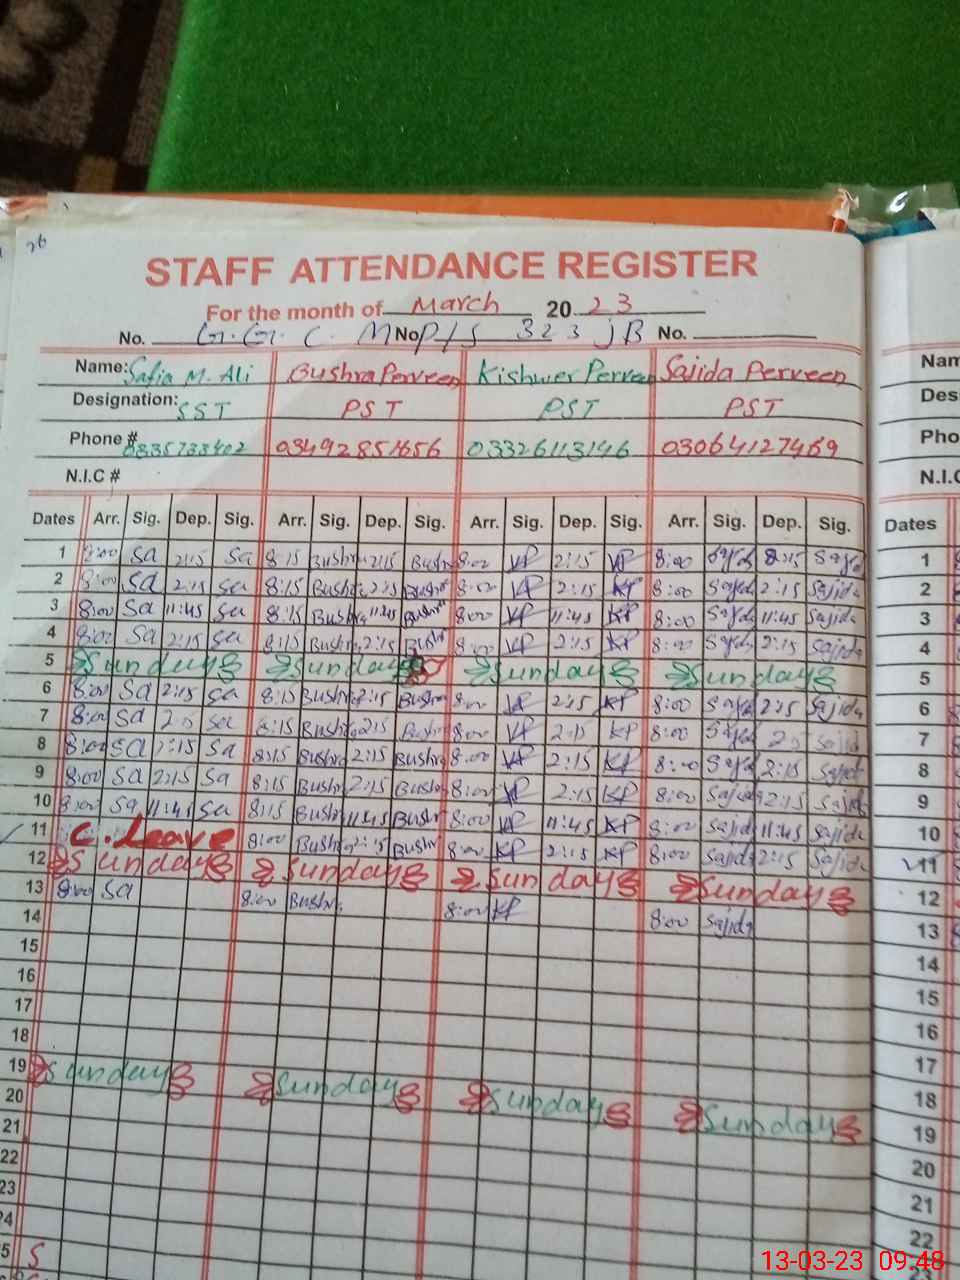 26
STAFF ATTENDANCE REGISTER
For the month of March 20 23
No. G.G. C. M No. P/S 323 JB No.
Name: Safia M. Ali Bushra Perveen Kishwer Perveen Sajida Perveen
Designation: SST PST PST PST
Phone # 03492851656 03326113146 03064127469
N.I.C #
Dates Arr. Sig. Dep. Sig. Arr. Sig. Dep. Sig. Arr. Sig. Dep. Sig. Arr. Sig. Dep. Sig.
1 8:00 Sa 2:15 Sa 8:15 Bushra 2:15 Bush 8:00 KP 2:15 KP 8:00 Sajd 2:15 Sajd
2 8:00 Sa 2:15 Sa 8:15 Bushra 2:15 Bushra 8:00 KP 2:15 KP 8:00 Sajd 2:15 Sajida
3 8:00 Sa 11:45 Sa 8:15 Bushra 11:45 Bushra 8:00 KP 11:45 KP 8:00 Sajd 11:45 Sajida
4 8:00 Sa 2:15 Sa 8:15 Bushra 2:15 Bush 8:00 KP 2:15 KP 8:00 Sajd 2:15 Sajida
5 Sunday Sunday Sunday Sunday
6 8:00 Sa 2:15 Sa 8:15 Bushra 2:15 Bushra 8:00 KP 2:15 KP 8:00 Sajd 2:15 Sajida
7 8:00 Sa 2:15 Sa 8:15 Bushra 2:15 Bushra 8:00 KP 2:15 KP 8:00 Sajd Sajid
8 8:00 Sa 2:15 Sa 8:15 Bushra 2:15 Bushra 8:00 KP 2:15 KP 8:00 Sajd 2:15 Sajd
9 8:00 Sa 2:15 Sa 8:15 Bushra 2:15 Bushr 8:00 KP 2:15 KP 8:00 Sajida 2:15 Sajida
10 8:00 Sa 11:45 Sa 8:15 Bushra 11:45 Bushr 8:00 KP 11:45 KP 8:00 Sajid 11:45 Sajida
11 C. Leave 8:00 Bushra 2:15 Bushr 8:00 KP 2:15 KP 8:00 Sajid 2:15 Sajida
12 Sunday Sunday Sunday Sunday
13 8:00 Sa 8:00 Bushra 8:00 KP 8:00 Sajida
14
15
16
17
18
19 Sunday Sunday Sunday Sunday
20
21
22
23
24
25 S
Nam
Des
Pho
N.I.C
Dates
1
2
3
4
5
6
7
8
9
10
11
12
13
14
15
16
17
18
19
20
21
22
13-03-23 09:48